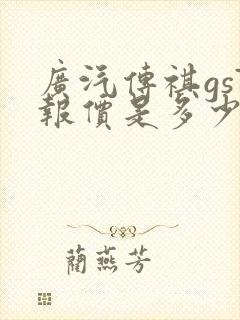 廣汽傳祺gs
報價是多少
藺燕芳